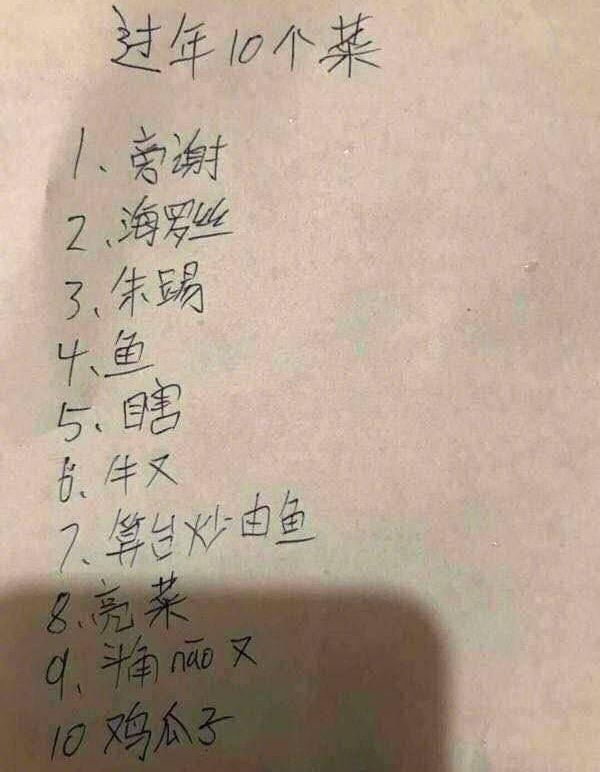 过年10个菜
1、旁谢
2、海罗丝
3、朱踢
4、鱼
5、瞎
6、牛又
7、算台炒由鱼
8、亮菜
9、斗角nāo又
10 鸡瓜子